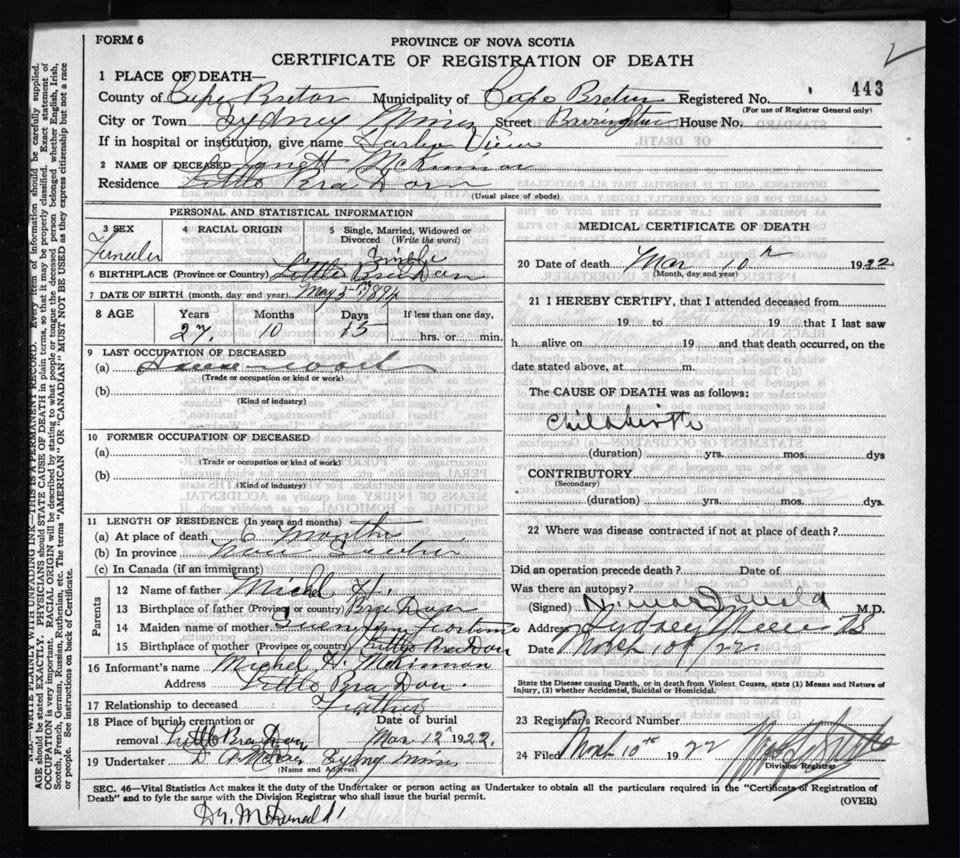 FORM 6
PROVINCE OF NOVA SCOTIA
CERTIFICATE OF REGISTRATION OF DEATH
1 PLACE OF DEATH—
County of Cape Breton Municipality of Cape Breton Registered No. 443
(For use of Registrar General only)
City or Town Sydney Mines Street House No.
If in hospital or institution, give name Harbor View
2 NAME OF DECEASED McKinnon
Residence Little Bra Dorn
(Usual place of abode)
PERSONAL AND STATISTICAL INFORMATION
3 SEX
4 RACIAL ORIGIN
5 Single, Married, Widowed or Divorced (Write the word)
Single
6 BIRTHPLACE (Province or Country) Little Bra Dorn
7 DATE OF BIRTH (month, day and year) May 5 1894
8 AGE Years Months Days If less than one day,
27 10 15 hrs. or min.
9 LAST OCCUPATION OF DECEASED
(a) House work
(Trade or occupation or kind or work)
(b)
(Kind of industry)
10 FORMER OCCUPATION OF DECEASED
(a)
(Trade or occupation or kind of work)
(b)
(Kind of industry)
11 LENGTH OF RESIDENCE (In years and months)
(a) At place of death 6 Months
(b) In province Nova Scotia
(c) In Canada (if an immigrant)
Parents
12 Name of father Michel H.
13 Birthplace of father (Province or country) Bra Dorn
14 Maiden name of mother
15 Birthplace of mother (Province or country) Little Bra Dorn
16 Informant's name Michel H. McKinnon
Address Little Bra Dor
17 Relationship to deceased Father
18 Place of burial cremation or removal Little Bra Dor
Date of burial Mar 12 1922.
19 Undertaker Sydney Mines
(Name and Address)
MEDICAL CERTIFICATE OF DEATH
20 Date of death Mar 10th 1922
(Month, day and year)
21 I HEREBY CERTIFY, that I attended deceased from
19 to 19 that I last saw
h alive on 19 and that death occurred, on the
date stated above, at m.
The CAUSE OF DEATH was as follows:
Childbirth
(duration) yrs. mos. dys
CONTRIBUTORY
(Secondary)
(duration) yrs. mos. dys.
22 Where was disease contracted if not at place of death?
Did an operation precede death? Date of
Was there an autopsy?
(Signed) McDonald M.D.
Address Sydney Mines NS
Date March 10th/22
State the Disease causing Death, or in death from Violent Causes, state (1) Means and Nature of
Injury, (2) whether Accidental, Suicidal or Homicidal.
23 Registrar's Record Number
24 Filed March 10th 1922
Division Registrar
SEC. 46—Vital Statistics Act makes it the duty of the Undertaker or person acting as Undertaker to obtain all the particulars required in the "Certificate of Registration of
Death" and to fyle the same with the Division Registrar who shall issue the burial permit.
(OVER)
Dr. McDonald
N.B.—WRITE PLAINLY WITH UNFADING INK—THIS IS A PERMANENT RECORD. Every item of information should be carefully supplied.
AGE should be stated EXACTLY. PHYSICIANS should STATE CAUSE OF DEATH in plain terms, so that it may be properly classified. Exact statement of
OCCUPATION is very important. RACIAL ORIGIN will be described by stating to what people or tongue the deceased person belonged whether English, Irish,
Scotch, French, German, Russian, Ruthenian, etc. The terms "AMERICAN" OR "CANADIAN" MUST NOT BE USED as they express citizenship but not a race
or people. See instructions on back of Certificate.